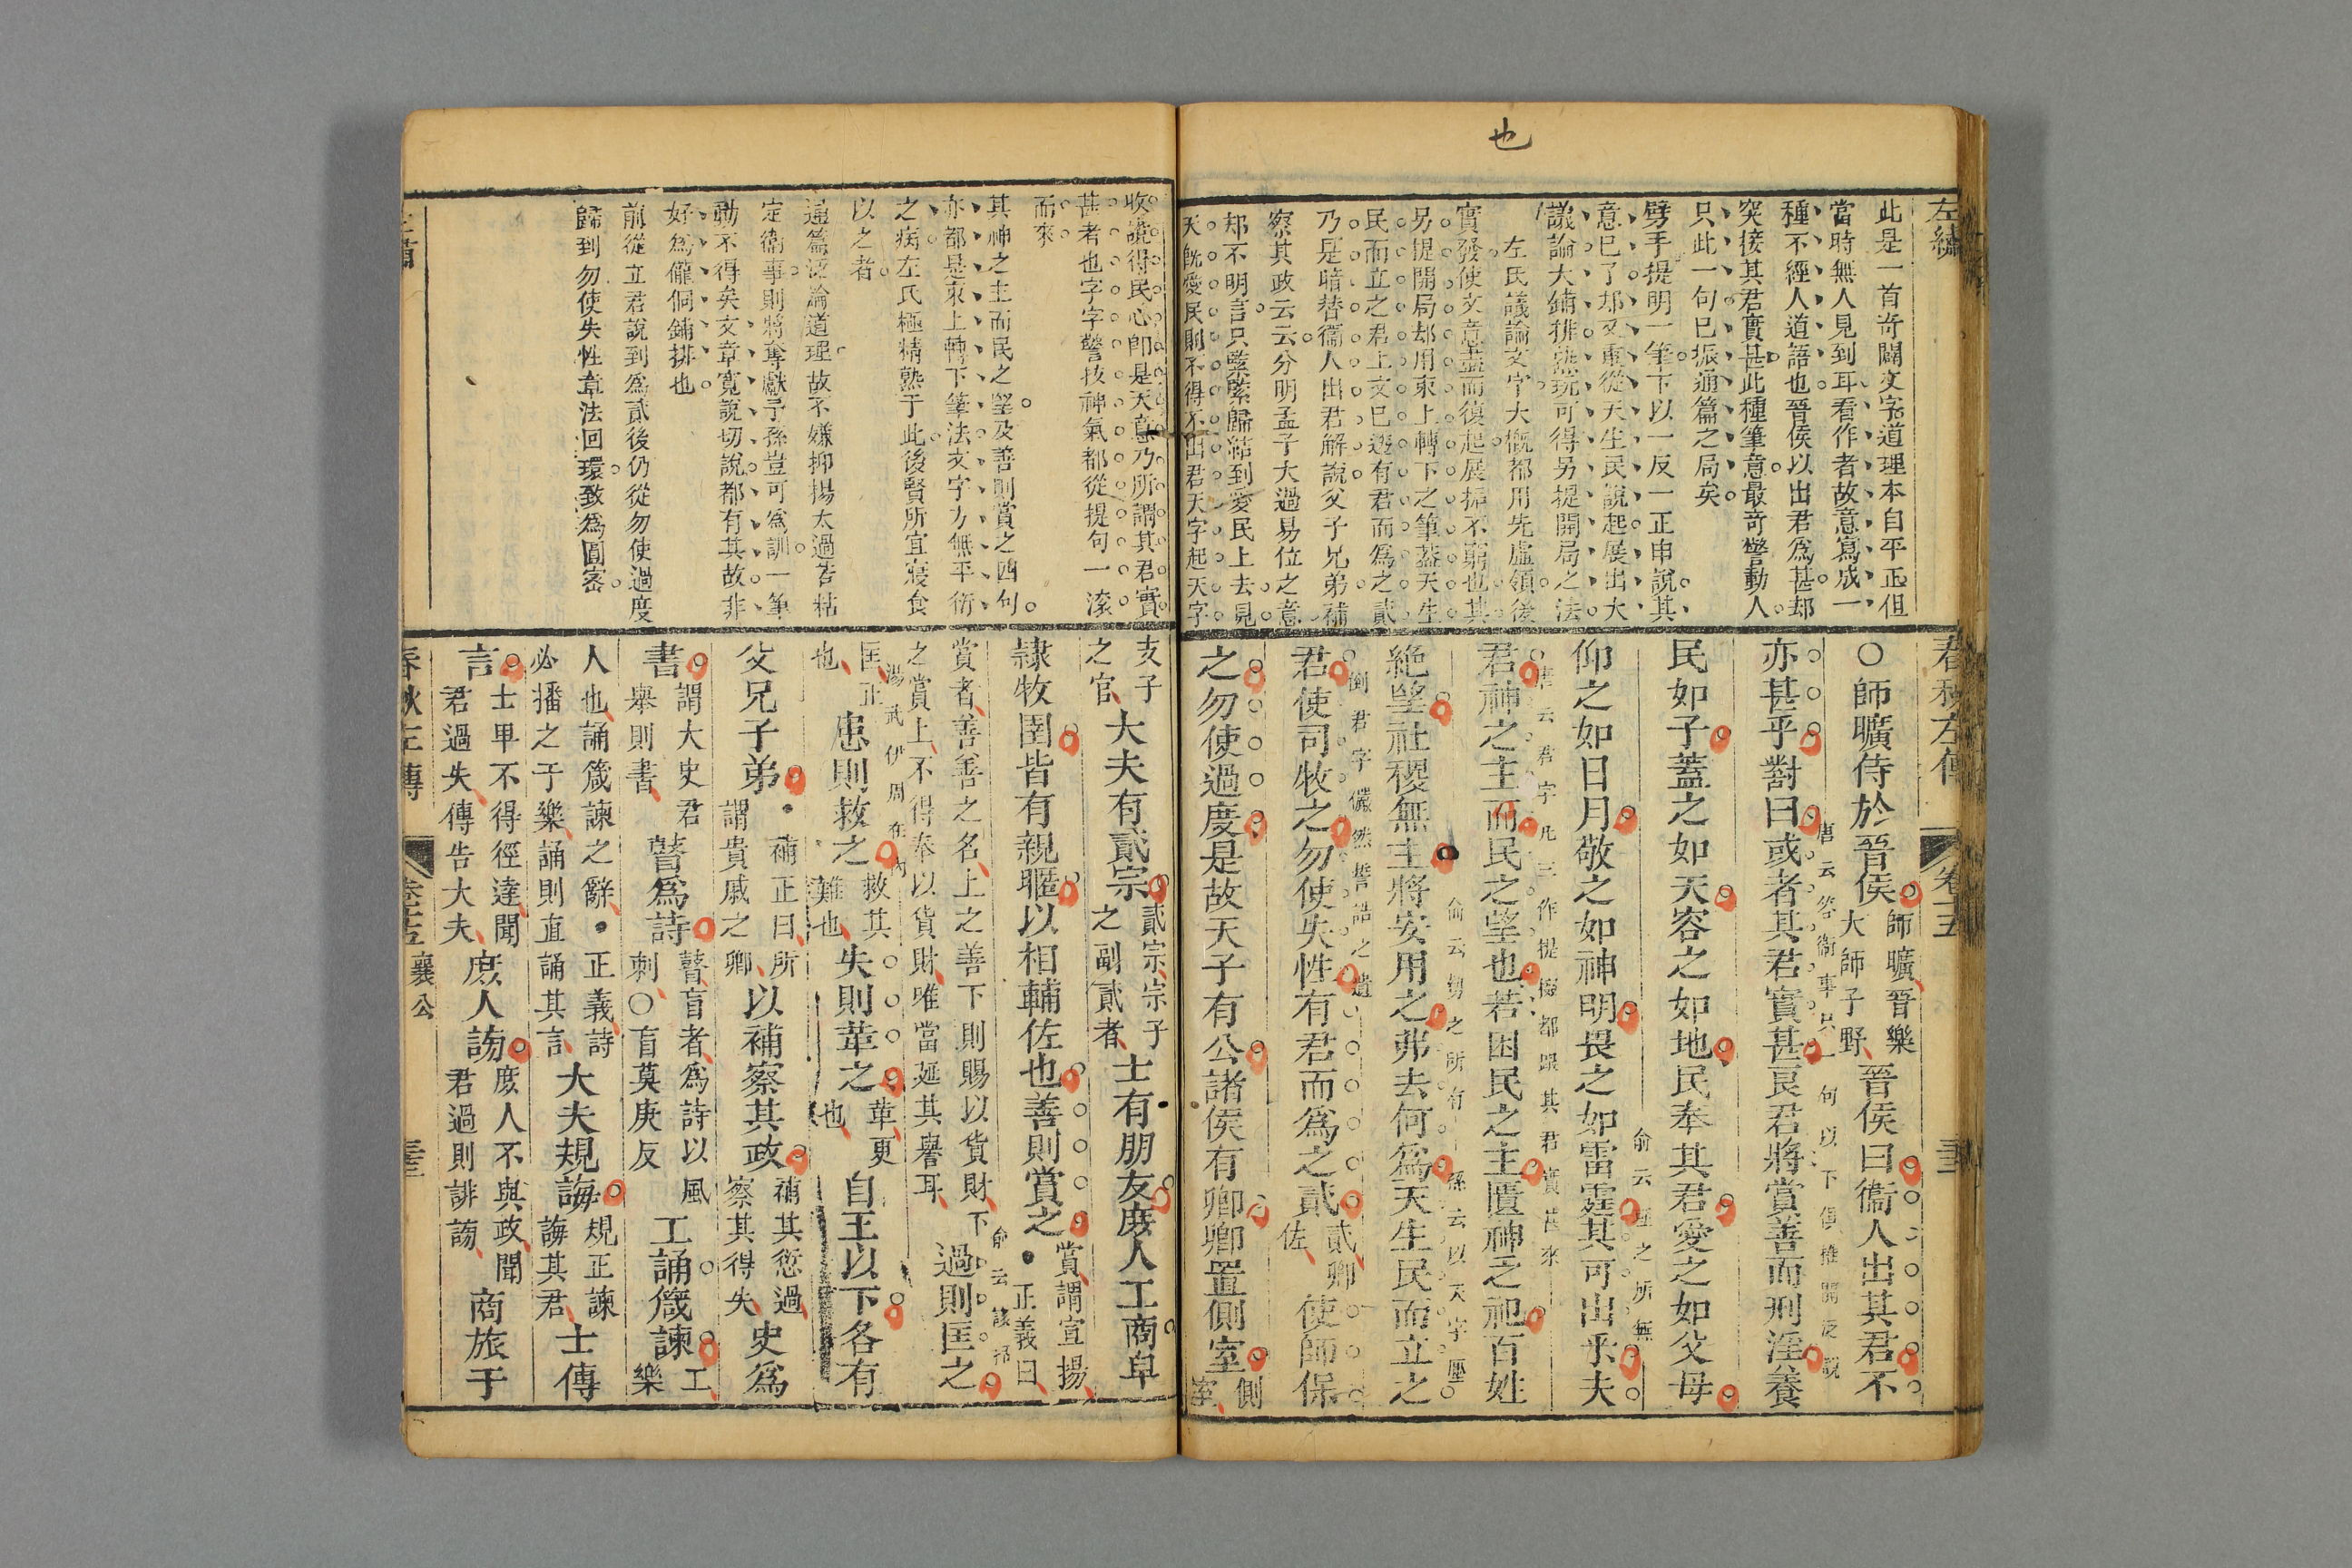 也
左繡
此是一首奇闢文字道理本自平正但
當時無人見到耳看作者故意寫成一
種不經人道語也晉侯以出君為甚却
突接其君實甚此種筆意最奇警動人
只此一句已振通篇之局矣
劈手提明一筆下以一反一正申說其
意已了却又重從天生民說起展出大
議論大鋪排熟玩可得另提開局之法
左氏議論文字大概都用先虛領後
實發使文意盡而復起展拓不窮也其
另提開局却用束上轉下之筆蓋天生
民而立之君上文已透有君而為之貳
乃是暗替衞人出君解說父子兄弟補
察其政云云分明孟子大過易位之意
却不明言只縈縈歸結到愛民上去見
天既愛民則不得不出君天字起天字
收說得民心即是天意乃所謂其君實
甚者也字字警拔神氣都從提句一滾
而來
其神之主而民之望及善則賞之四句
亦都是束上轉下筆法文字方無平衍
之病左氏極精熟于此後賢所宜寢食
以之者
通篇泛論道理故不嫌抑揚太過若粘
定衞事則將奪獻子孫豈可為訓一筆
動不得矣文章寬說切說都有其故非
好為儱侗鋪排也
前從立君說到為貳後仍從勿使過度
歸到勿使失性章法回環致為圓密
春秋左傳
卷十五
○師曠侍於晉侯師曠晉樂大師子野晉侯曰衞人出其君不
亦甚乎對曰或者其君實甚良君將賞善而刑淫養
唐云答衞事只一句以下俱推開泛說
民如子蓋之如天容之如地民奉其君愛之如父母
仰之如日月敬之如神明畏之如雷霆其可出乎夫
俞云極之所無
君神之主而民之望也若困民之主匱神之祀百姓
唐云君字凡三作提掇都跟其君實甚來
絕望社稷無主將安用之弗去何為天生民而立之
孫云以天字壓
君使司牧之勿使失性有君而為之貳貳卿佐使師保
之勿使過度是故天子有公諸侯有卿卿置側室側室
支子之官大夫有貳宗貳宗宗子之副貳者士有朋友庶人工商皁
隸牧圉皆有親暱以相輔佐也善則賞之賞謂宣揚•正義曰
賞者善善之名上之善下則賜以貨財下之賞上不得奉以貨財唯當延其譽耳過則匡之
匡正也患則救之救其難也失則革之革更也自王以下各有
湯武伊周在內
父兄子弟•補正曰所謂貴戚之卿以補察其政補其愆過察其得失史為
書謂大史君舉則書瞽為詩瞽盲者為詩以風刺○盲莫庚反工誦箴諫工樂
人也誦箴諫之辭•正義詩必播之于樂誦則直誦其言大夫規誨規正諫誨其君士傳
言士卑不得徑達聞君過失傳告大夫庶人謗庶人不與政聞君過則誹謗商旅于
春秋左傳
襄公